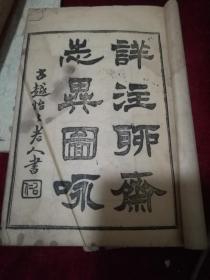 詳注聊齋
志異圖詠
古越怡々老人書